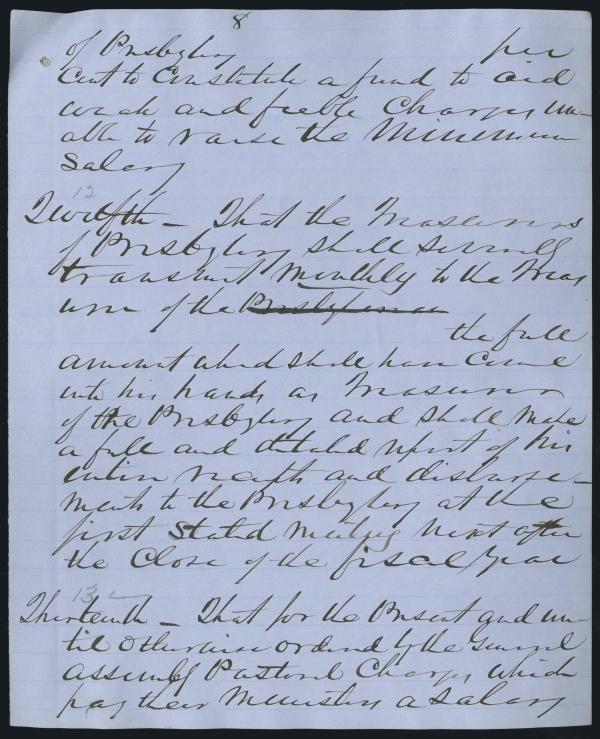 8
of Presbytery per
Cent to Constitute a fund to aid
weak and feeble Charges un-
able to raise the Minimum
Salary
12
Twelfth - That the Treasurers
of Presbytery shall severally
transmit Monthly to the Treas
urer of the Presbyterian
the full
amount which shall have Come
into his hands as Treasurer
of the Presbytery and shall make
a full and detailed report of his
entire receipts and disburse-
ments to the Presbytery at the
first Stated Meeting next after
the Close of the fiscal year
13
Thirteenth - That for the Present and un-
til otherwise ordered by the General
Assembly Pastoral Charges which
pay their Ministers a Salary